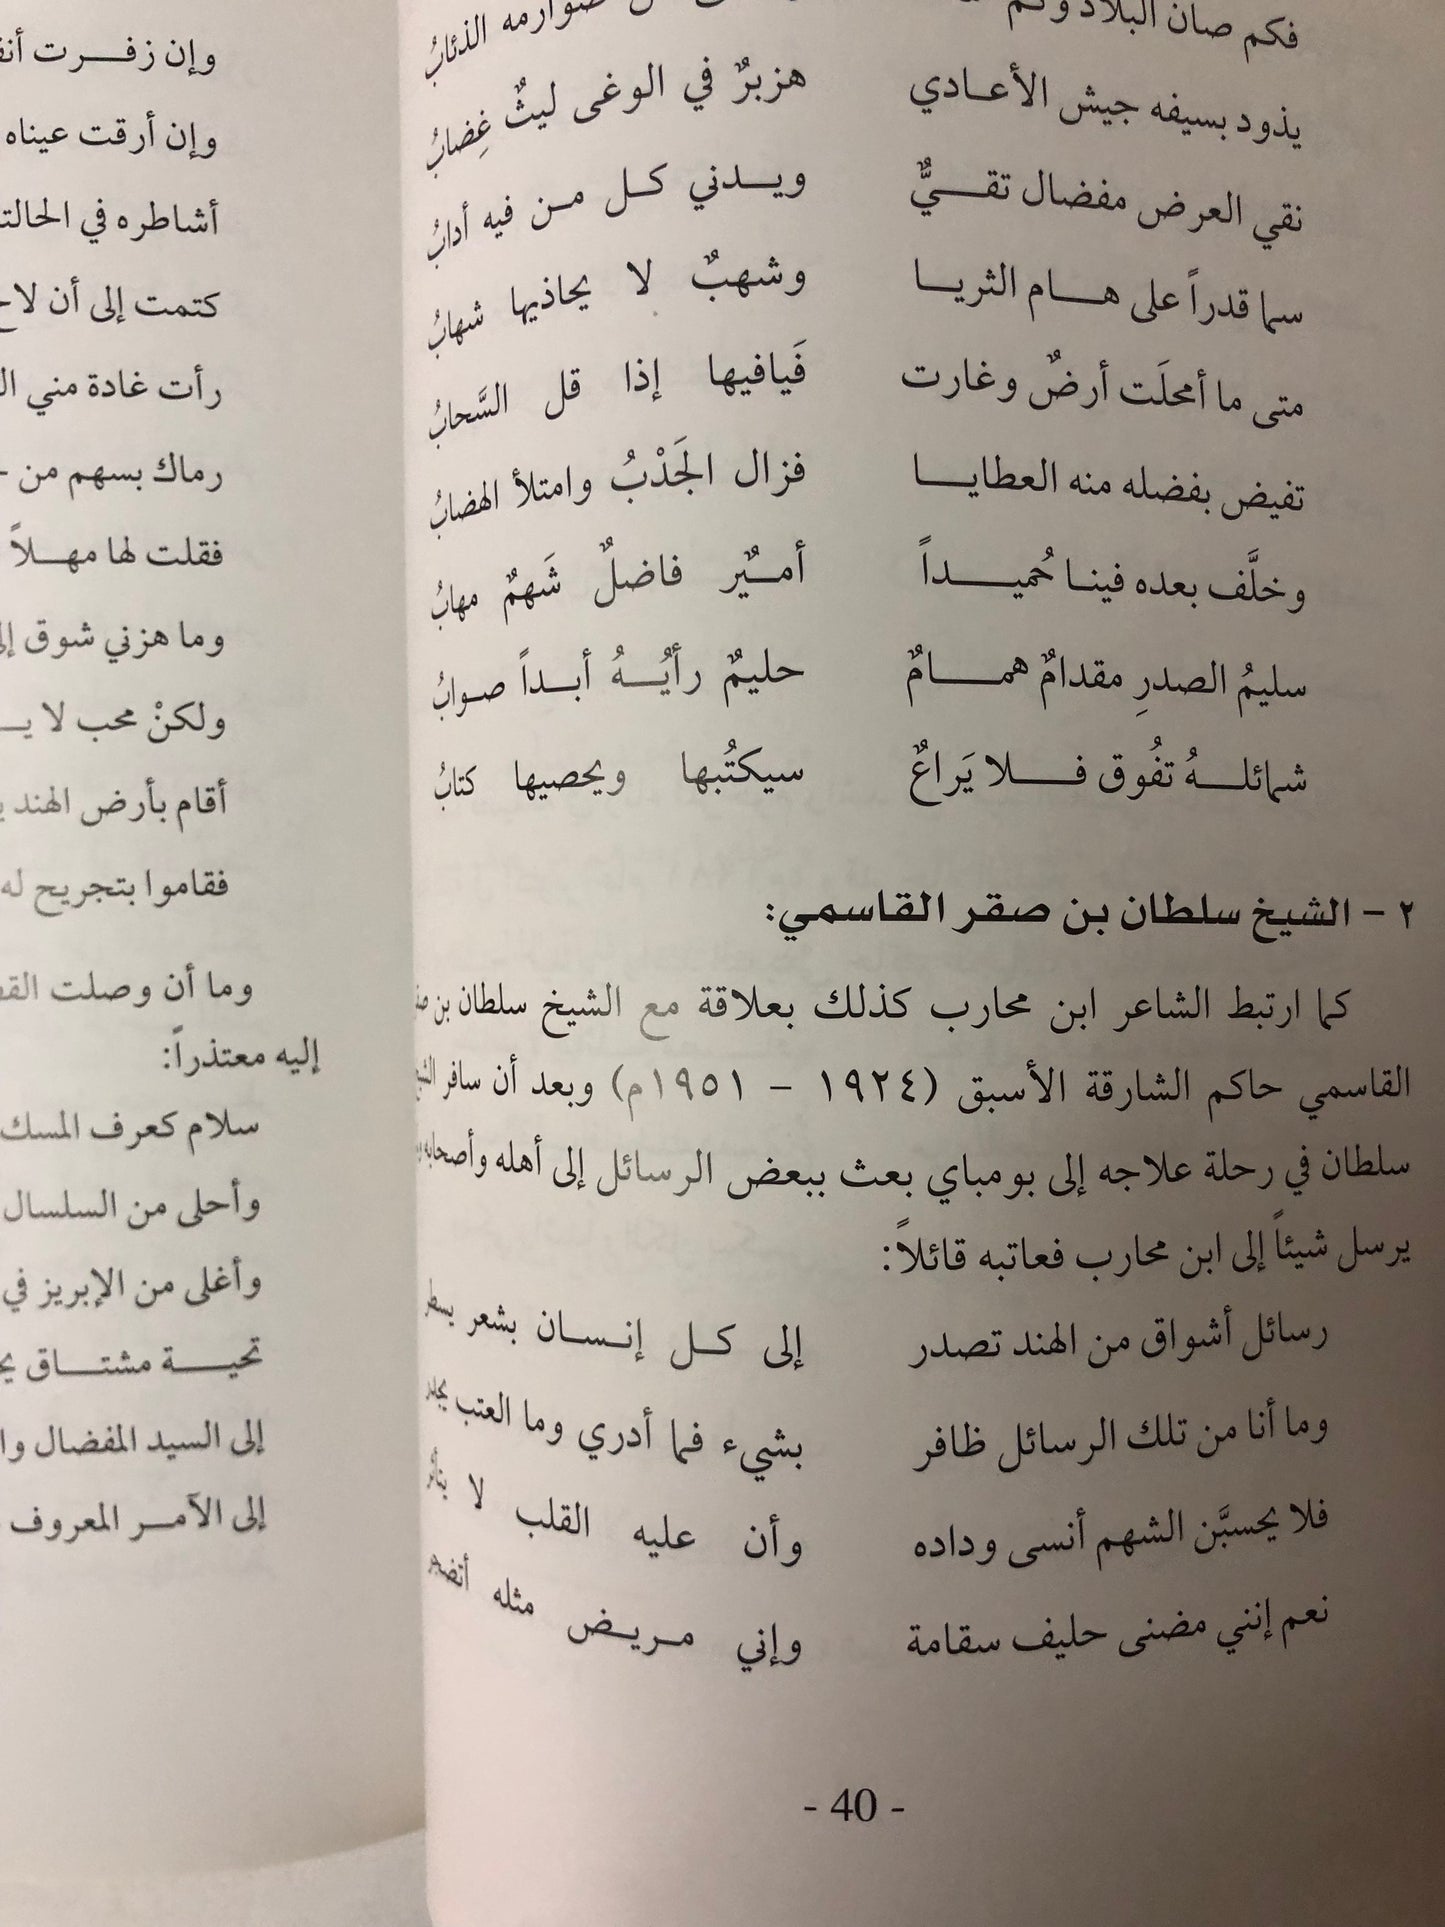 فكم صان البلاد وكم صوارمه الذئابُ
يذود بسيفه جيش الأعـادي هزبرٌ في الوغى ليثٌ غِضابُ
نقي العرض مفضال تقـــيٌّ ويــدني كـل مـن فيه أدابُ
سما قدراً على هـــام الثريـــا وشهبٌ لا يحاذيها شهابُ
متى ما أمحلَت أرضٌ وغارت فَيافيها إذا قل السَّحابُ
تفيض بفضله منه العطايـــا فزال الجَدْبُ وامتلأ الهضابُ
وخلَّف بعده فينـا حُميـــداً أمــيٌر فاضلٌ شَهمٌ مهابُ
سليمُ الصدرِ مقدامٌ همـــامٌ حليمٌ رأيُــهُ أبــداً صـوابُ
شمائلــهُ تفُوق فـــلا يَراعٌ سيكتُبها ويحصيها كتابُ
٢ - الشيخ سلطان بن صقر القاسمي:
كما ارتبط الشاعر ابن محارب كذلك بعلاقة مع الشيخ سلطان بن
القاسمي حاكم الشارقة الأسبق (١٩٢٤ - ١٩٥١م) وبعد أن سافر الشيخ
سلطان في رحلة علاجه إلى بومباي بعث ببعض الرسائل إلى أهله وأصحابه
يرسل شيئاً إلى ابن محارب فعاتبه قائلاً:
رسائل أشواق من الهند تصدر إلى كـل إنـسـان بشعر يسطر
وما أنا من تلك الرسائل ظافر بشيء فما أدري وما العتب
فلا يحسبَّن الشهم أنسى وداده وأن عليه القلب لا
نعم إنني مضنى حليف سقامة وإني مـريـض مثله
- 40 -
وإن زفـــرت
وإن أرقت عيناه
أشاطره في
كتمت إلى أن
رأت غادة مني
رماك بسهم من
فقلت لها مهـلاً
وما هزني شوق
ولكنْ محب لا
أقام بأرض الهند
فقاموا بتجريح له
وما أن وصلت
إليه معتذراً:
سلام كعرف المسك
وأحلى من السلسال
وأغلى من الإبريز في
تحيــــة مشتـــاق
إلى السيد المفضال
إلى الآمـــر المعروف